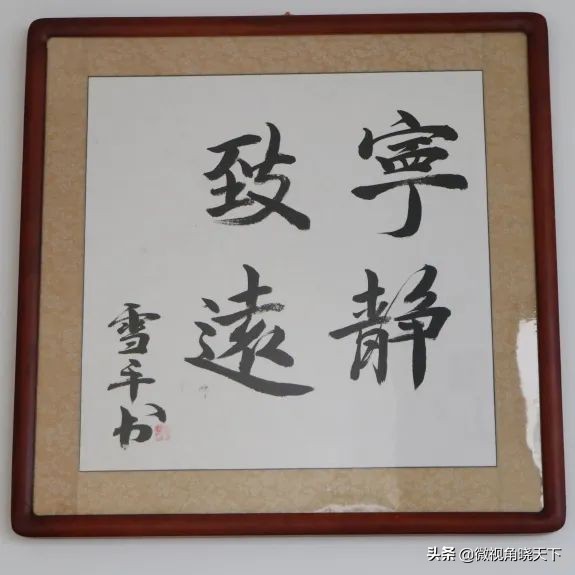 寧靜
致遠
雪平书
头条 @微视角晓天下